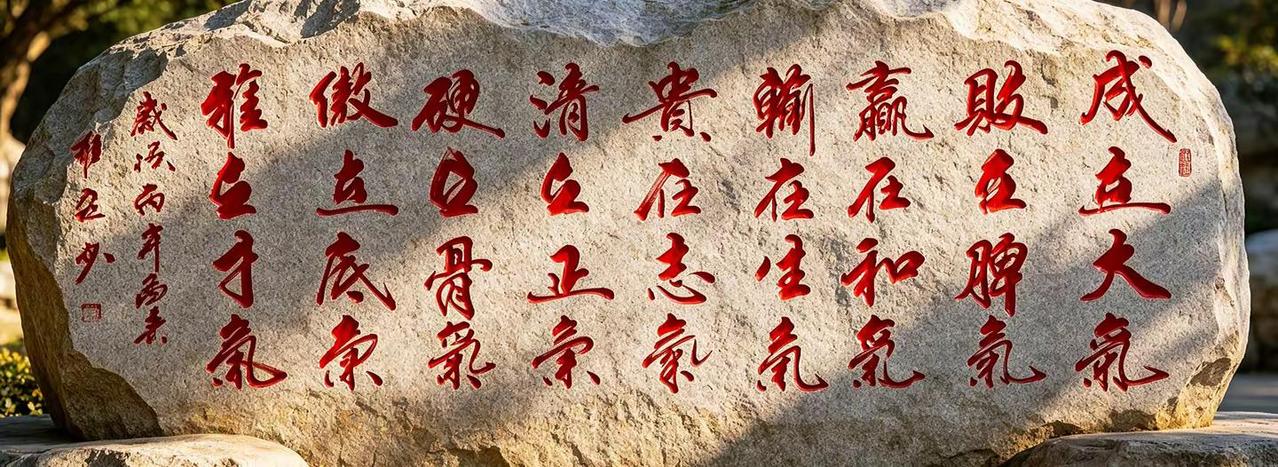 成在大氣
敗在脾氣
贏在和氣
輸在生氣
貴在志氣
清在正氣
硬在骨氣
傲在底氣
雅在才氣
丙年